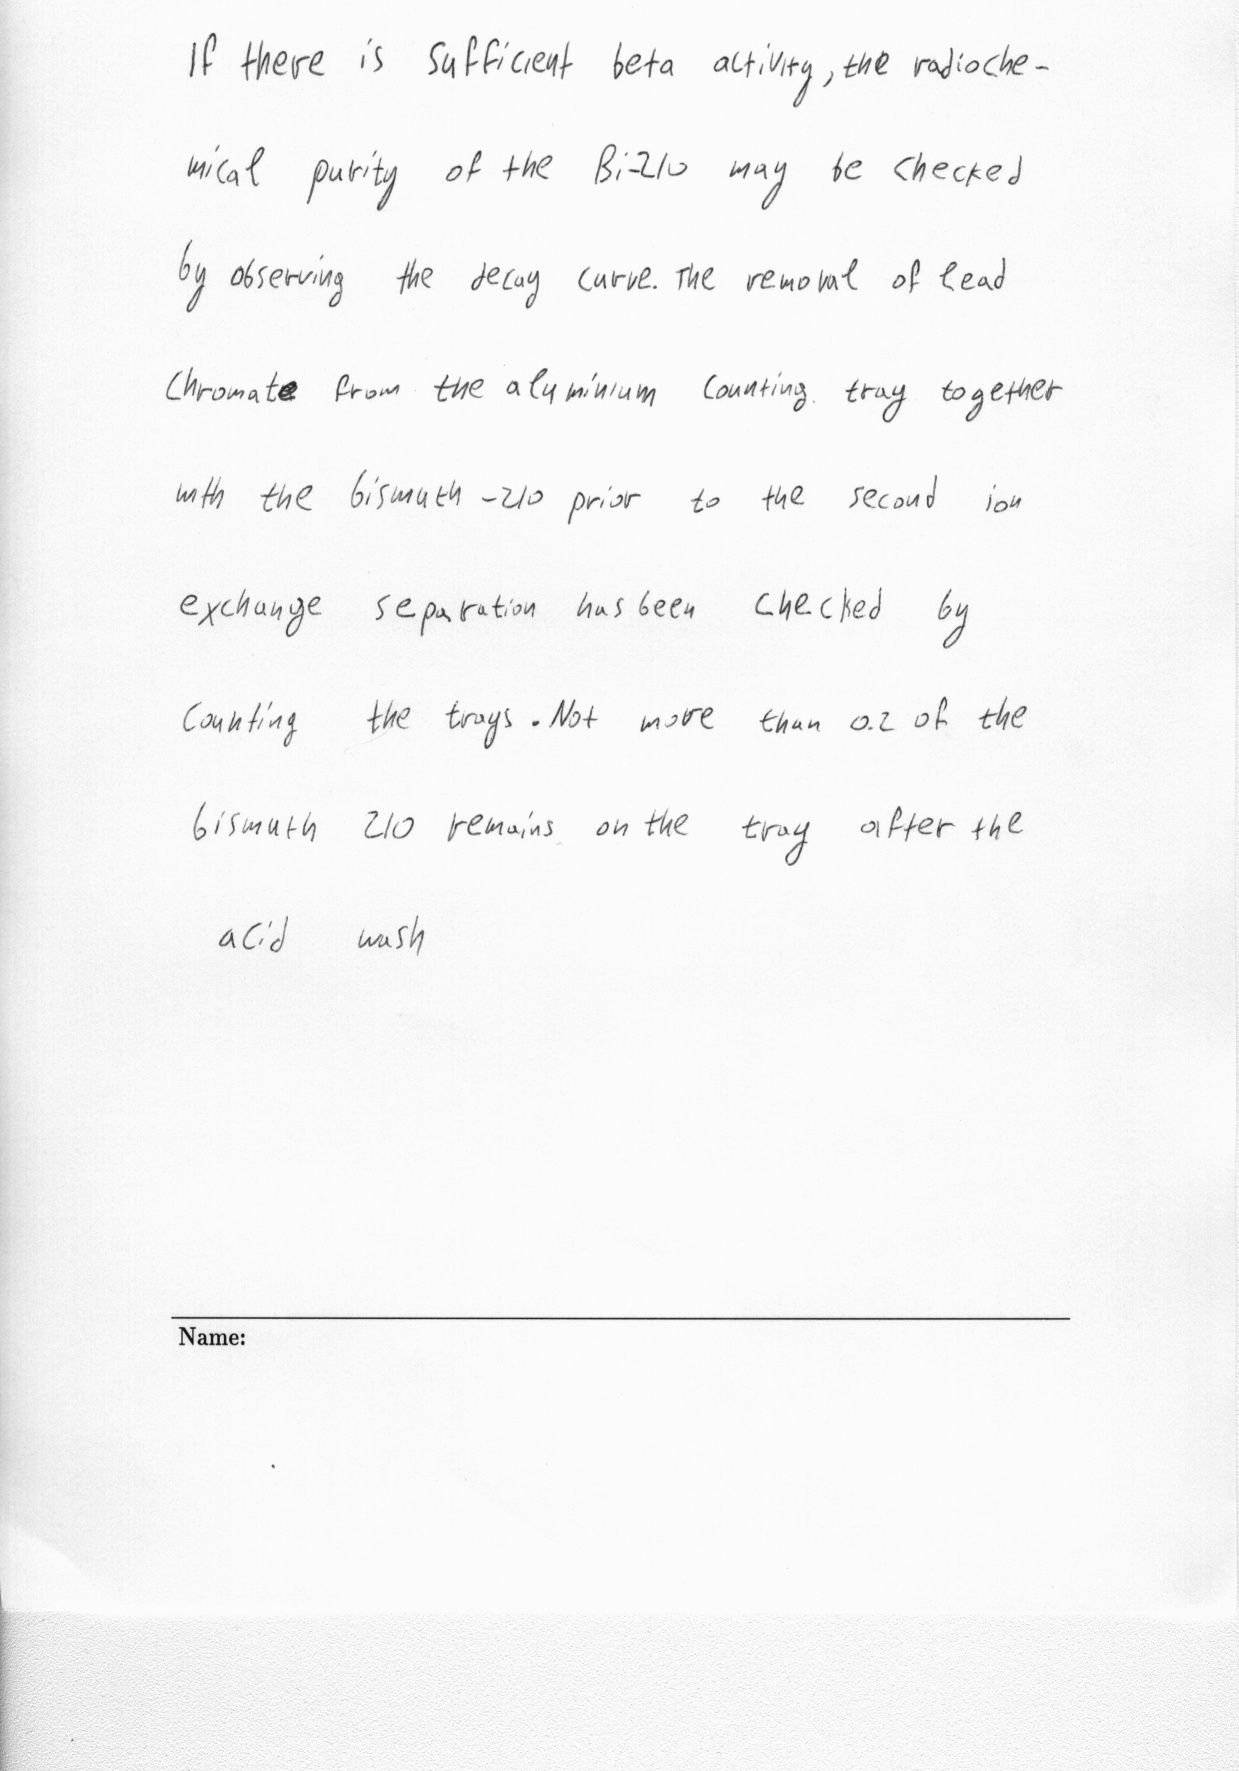 If there is sufficient beta activity, the radioche-
mical purity of the Bi-210 may be checked
by observing the decay curve. The removal of lead
chromate from the aluminium counting tray together
with the bismuth -210 prior to the second ion
exchange separation has been checked by
counting the trays. Not more than 0.2 of the
bismuth 210 remains on the tray after the
acid wash
Name: